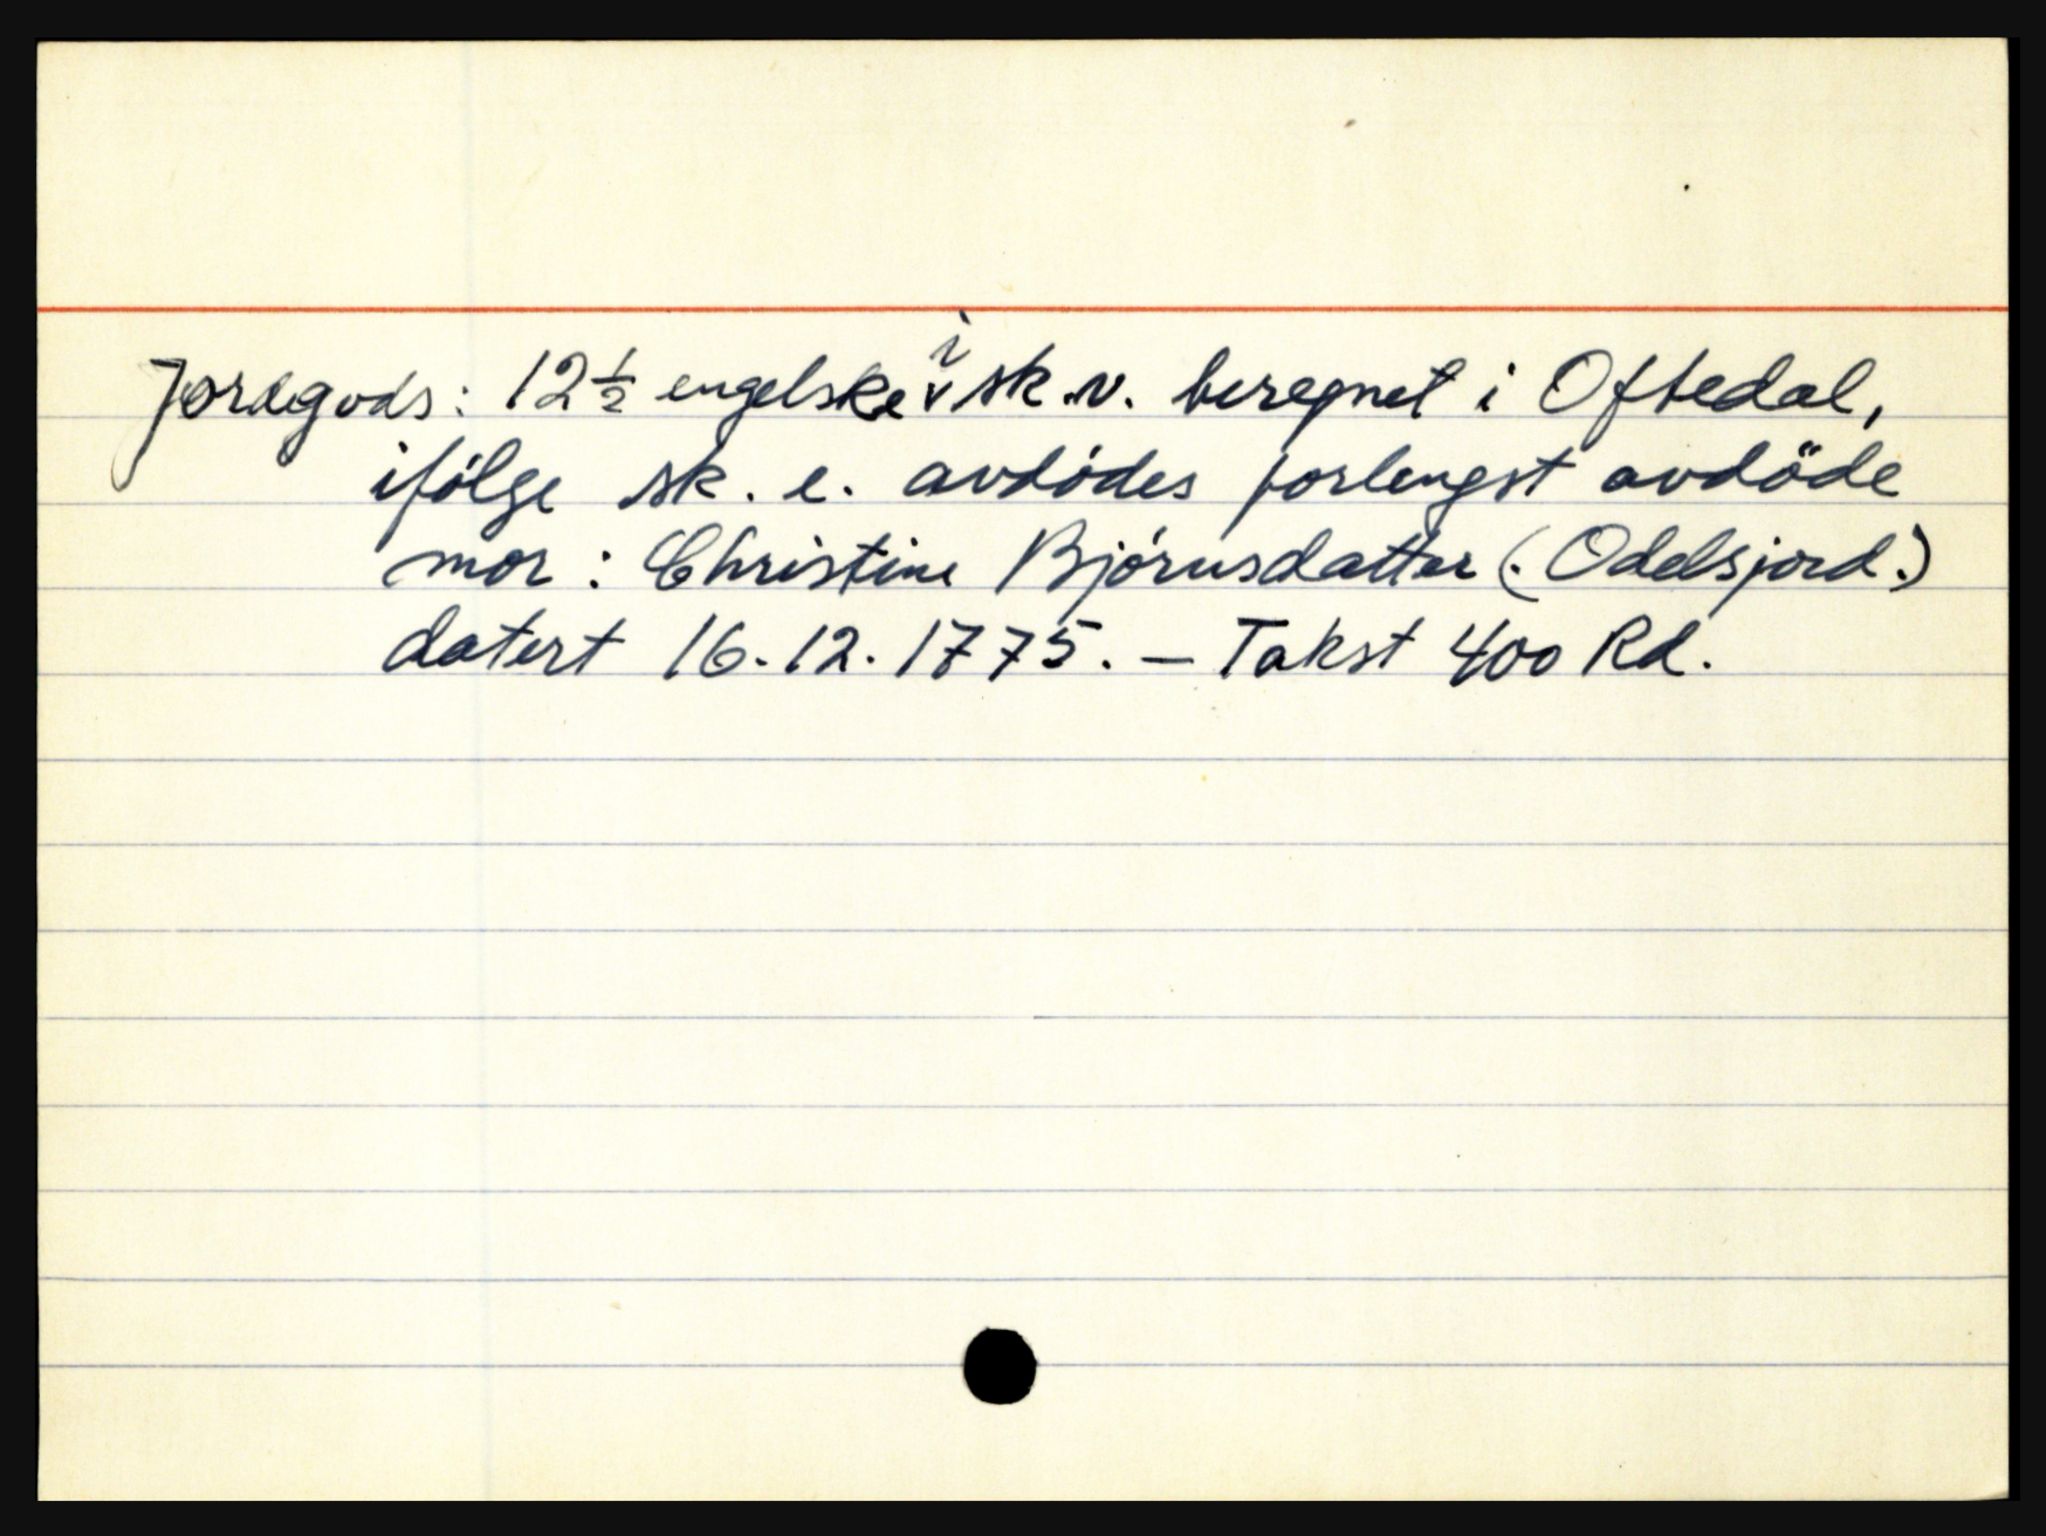 Jordgods: 12½ engelske i sk.v. beregnet i Oftedal,
ifólge sk. e. avdódes forlengst avdöde
mor: Christine Bjórnsdatter (. Odelsjord.)
datert 16.12.1775. — Takst 400 Rd.